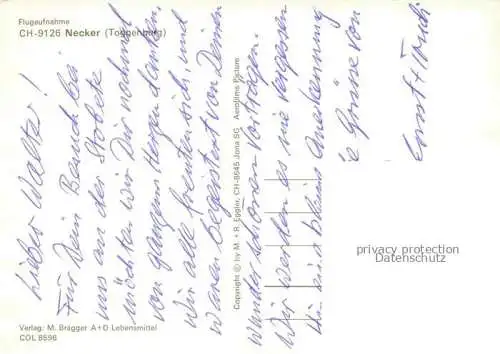 Flugaufnahme
CH-9126 Necker (Toggenburg)
Lieber Walter!
Für Dein Besuch bei
uns an der Stobete
möchten wir Dir nochmal
von ganzem Herzen danken.
Wir alle freuten sich, und
waren begeistert von Deinen
wunderschönen Vorträgen.
Wir werden es nie vergessen
kleine Anerkennung
Grüsse von
Ernst + Trudi
Copyright © by M. + R. Eggler, CH-8645 Jona SG Aerofilms Picture
Verlag: M. Brägger A+O Lebensmittel
COL 8596
privacy protection
Datenschutz